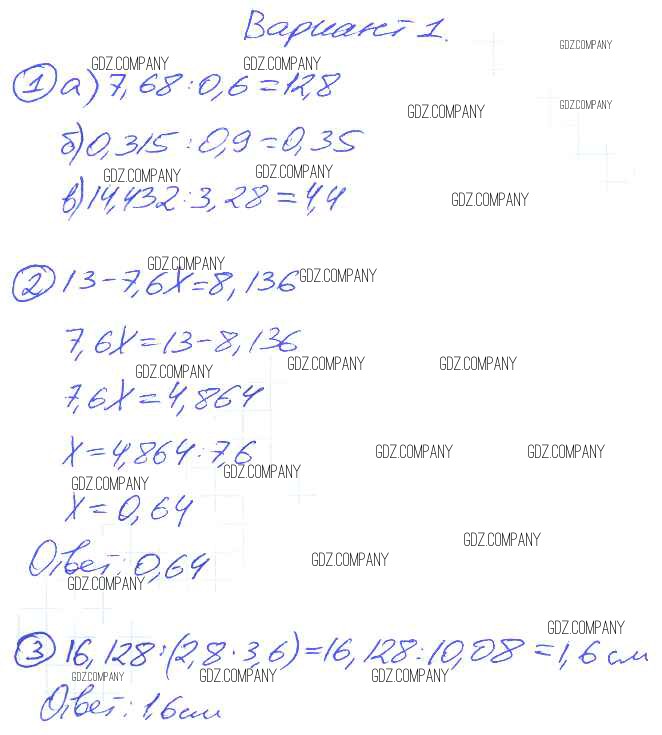 Вариант 1.
GDZ.COMPANY
GDZ.COMPANY GDZ.COMPANY
① а) 7,68 : 0,6 = 12,8
GDZ.COMPANY GDZ.COMPANY
б) 0,315 : 0,9 = 0,35
GDZ.COMPANY GDZ.COMPANY
в) 14,432 : 3,28 = 4,4
GDZ.COMPANY
GDZ.COMPANY GDZ.COMPANY
② 13 - 7,6х = 8,136
7,6х = 13 - 8,136
GDZ.COMPANY GDZ.COMPANY GDZ.COMPANY
7,6х = 4,864
х = 4,864 : 7,6
GDZ.COMPANY GDZ.COMPANY
GDZ.COMPANY GDZ.COMPANY
х = 0,64
GDZ.COMPANY
Ответ: 0,64
GDZ.COMPANY GDZ.COMPANY
GDZ.COMPANY
③ 16,128 : (2,8 · 3,6) = 16,128 : 10,08 = 1,6 см
GDZ.COMPANY GDZ.COMPANY GDZ.COMPANY
Ответ: 1,6 см